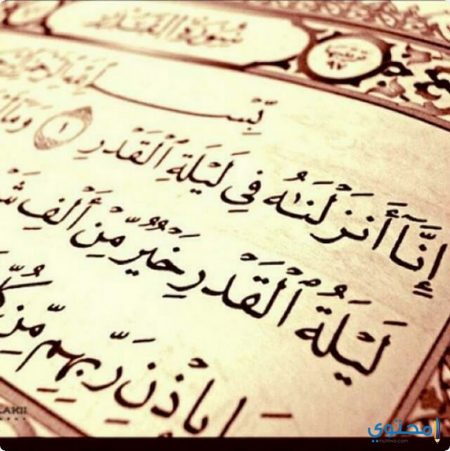 سُورَةُ القَدْرِ
بِسْمِ اللَّهِ الرَّحْمَٰنِ
إِنَّآ أَنزَلْنَٰهُ فِى لَيْلَةِ ٱلْقَدْرِ ١ وَمَآ
لَيْلَةُ ٱلْقَدْرِ خَيْرٌ مِّنْ أَلْفِ
بِإِذْنِ رَبِّهِم مِّن
محتوى